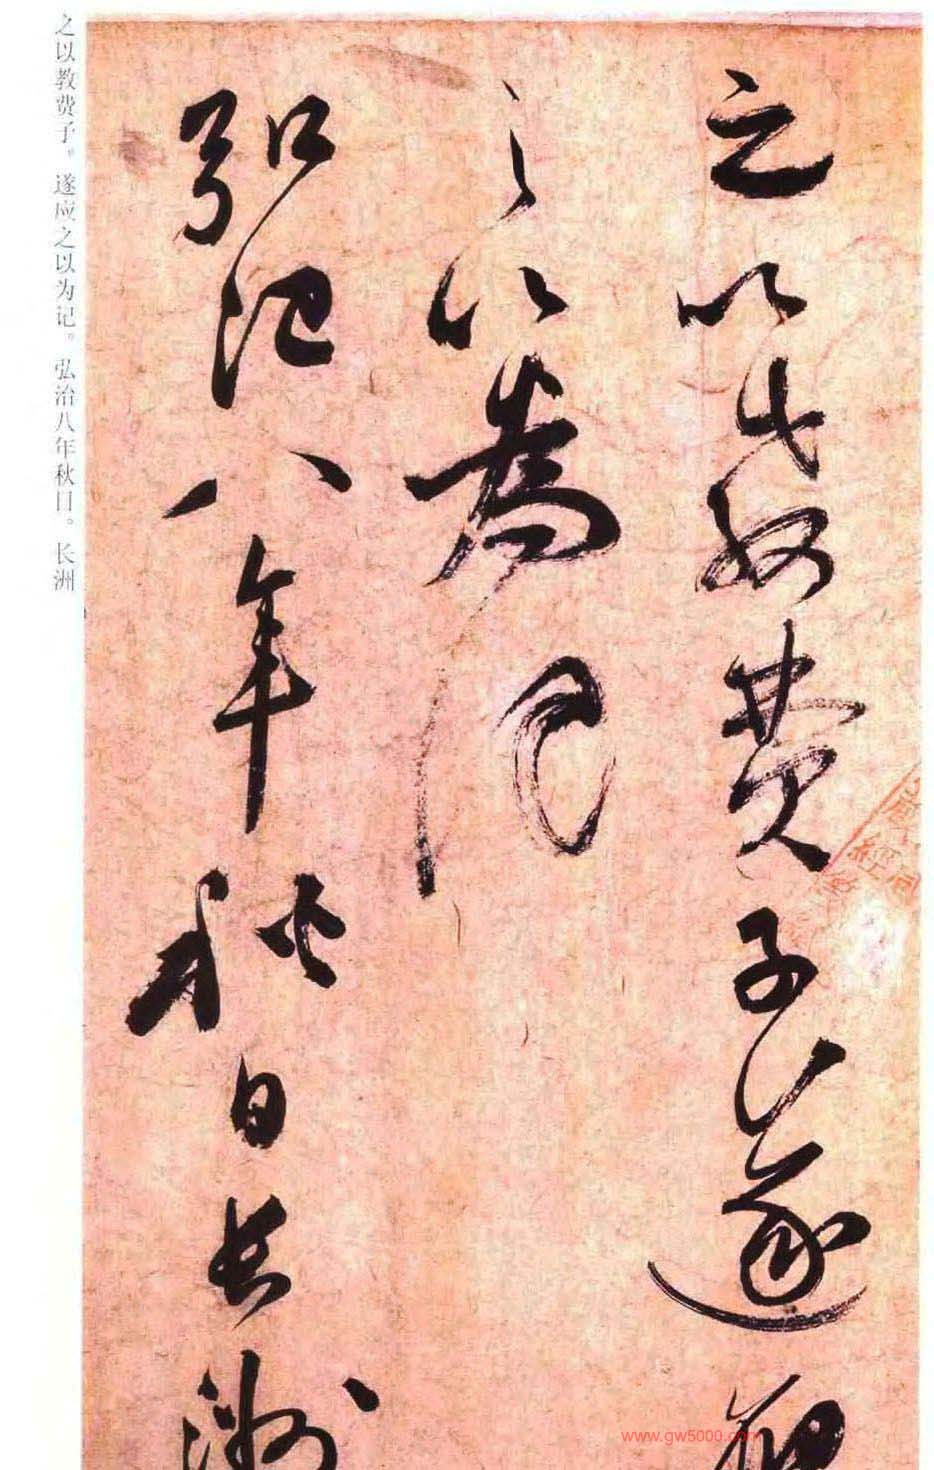 之以教费子。遂应之以为记。弘治八年秋日。长洲
之以教費子遂應
之以為記
弘治八年秋日長洲
www.gw5000.com